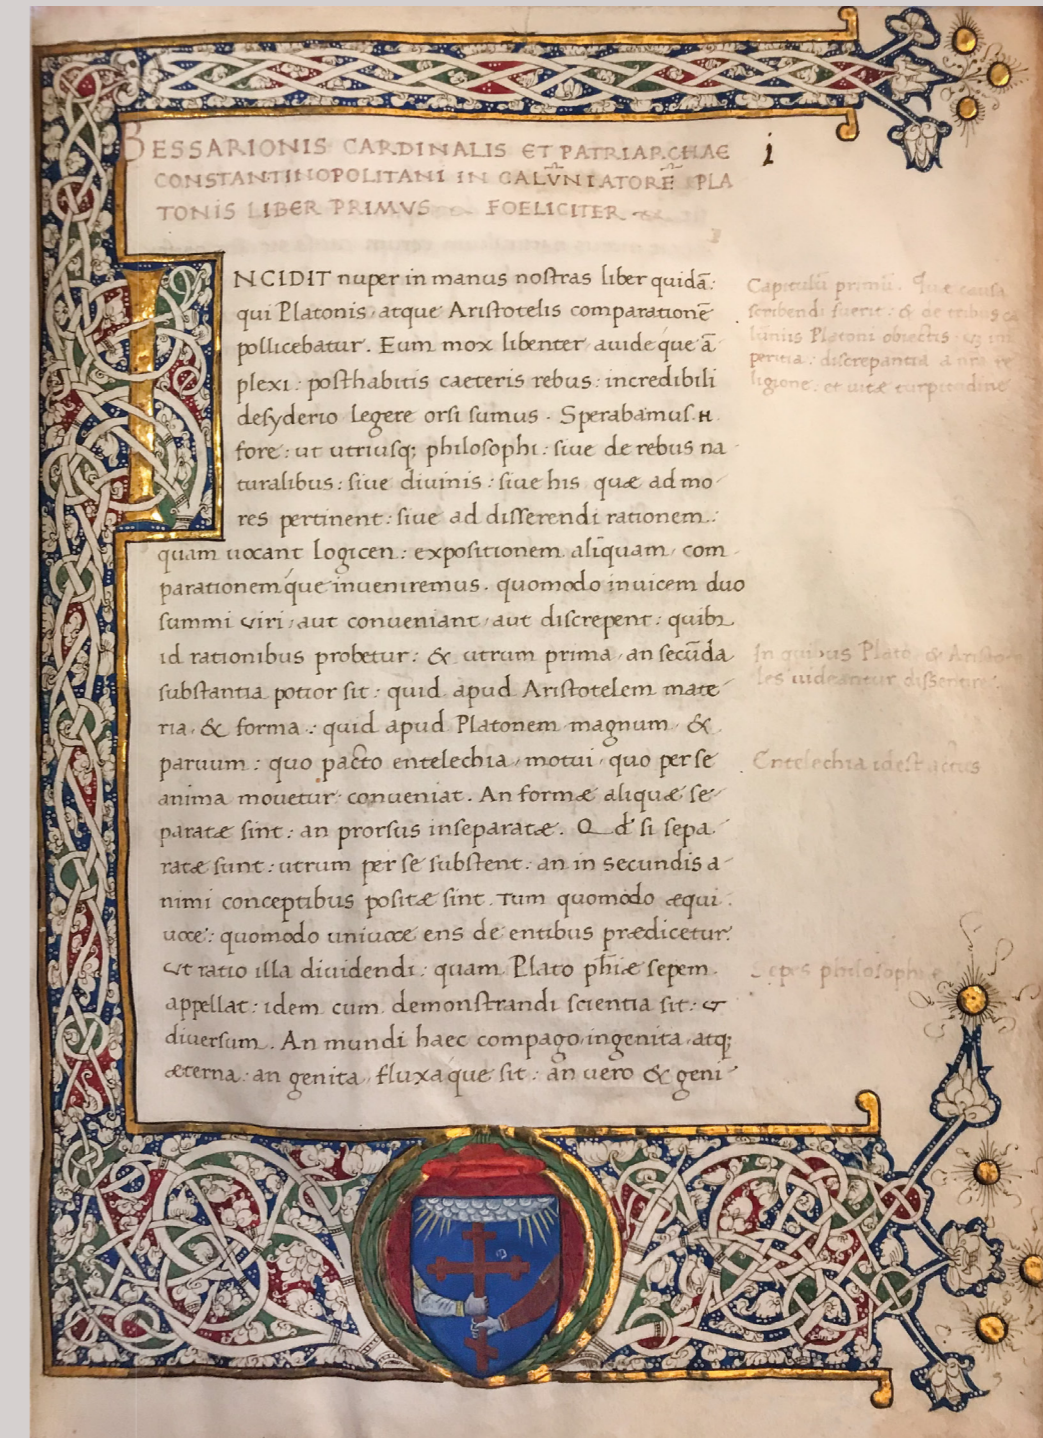 BESSARIONIS CARDINALIS ET PATRIARCHAE
CONSTANTINOPOLITANI IN CALV̄NIATORĒ PLA
TONIS LIBER PRIMVS FOELICITER
i
INCIDIT nuper in manus nostras liber quidā:
qui Platonis atque Aristotelis comparationē
pollicebatur. Eum mox libenter auideque ā
plexi: posthabitis caeteris rebus: incredibili
desyderio legere orsi sumus. Sperabamus.
fore: ut utriusq; philosophi: siue de rebus na
turalibus: siue diuinis: siue his quæ ad mo
res pertinent: siue ad disserendi rationem:
quam uocant logicen: expositionem aliquam com
parationemque inueniremus. quomodo inuicem duo
summi uiri aut conueniant aut discrepent: quibꝫ
id rationibus probetur: & utrum prima an secūda
substantia potior sit: quid apud Aristotelem mate
ria & forma: quid apud Platonem magnum &
paruum: quo pacto entelechia motui quo per se
anima mouetur conueniat. An formæ aliquæ se
paratæ sint: an prorsus inseparatæ. Qd si sepa
ratæ sunt: utrum per se substent: an in secundis a
nimi conceptibus positæ sint. Tum quomodo æqui
uoce: quomodo uniuoce ens de entibus prædicetur.
Vt ratio illa diuidendi: quam Plato phiæ sepem
appellat: idem cum demonstrandi scientia sit: et
diuersum. An mundi haec compago ingenita atq;
æterna: an genita fluxaque sit: an uero & geni
Capitulū primū. Que causa
scribendi fuerit: & de tribus
Platoni obiectis
peritia: discrepantia a
ligione: et uitæ turpitudine
In quibus Plato & Aristo
les uideantur dissentire.
Entelechia idest actus
Sepes